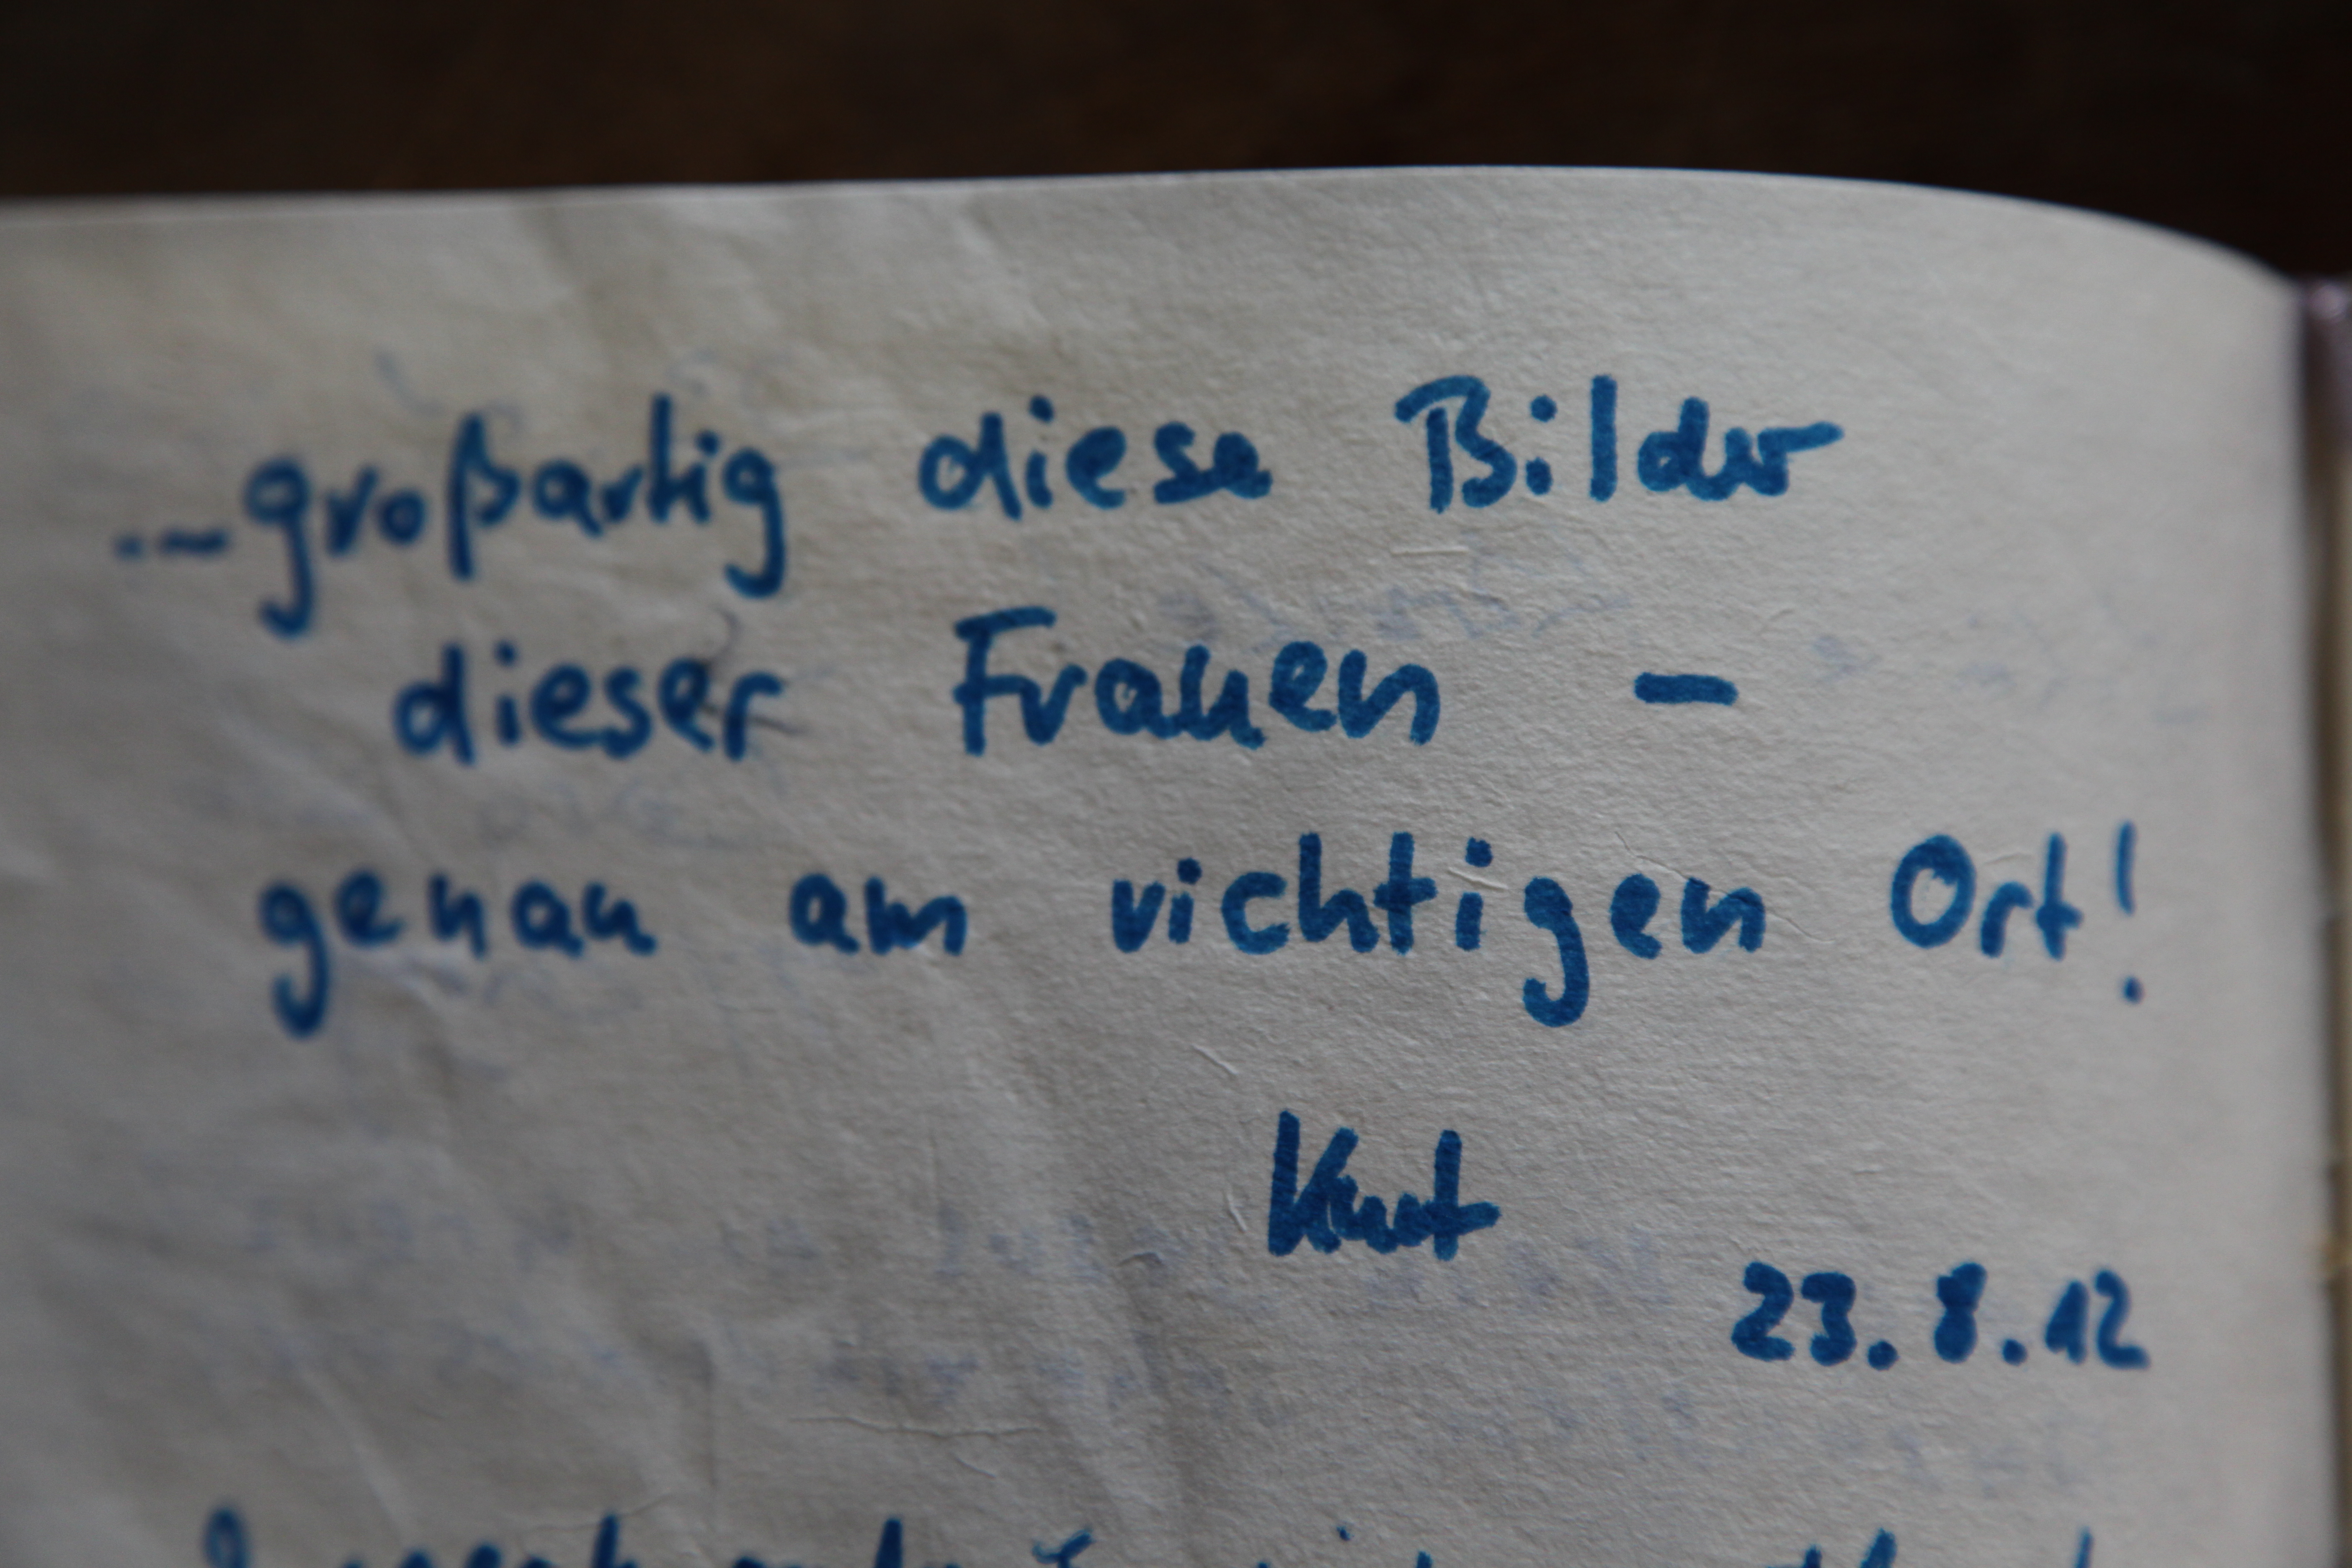 ...großartig diese Bilder
dieser Frauen –
genau am richtigen Ort!
Knut
23.8.12